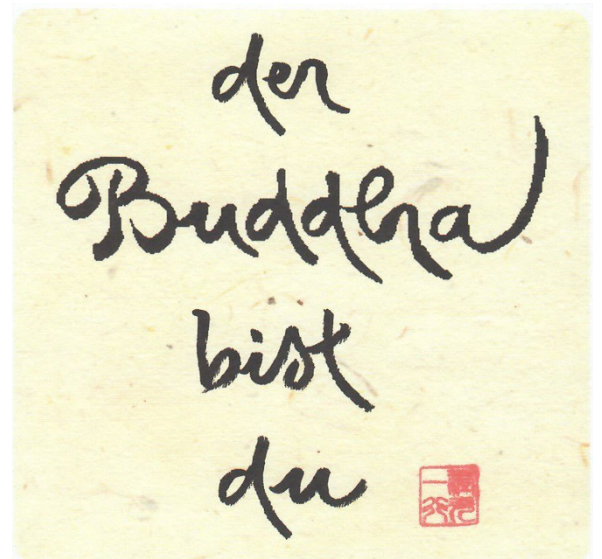 der
Buddha
bist
du